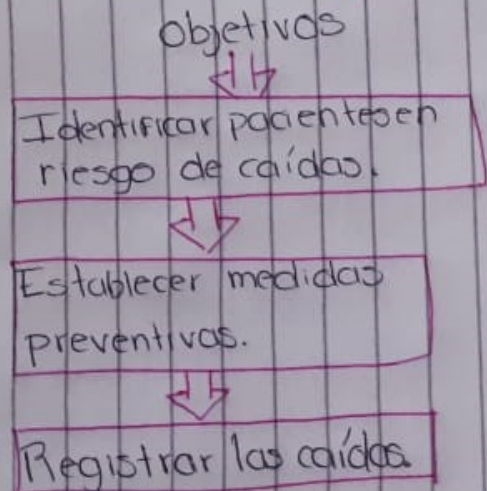 Objetivos
Identificar pacientes en
riesgo de caídas.
Establecer medidas
preventivas.
Registrar las caídas.